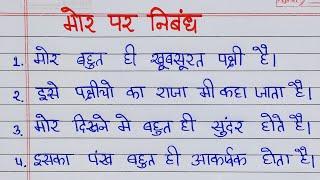 मोर पर निबंध
1. मोर बहुत ही खूबसूरत पक्षी है।
2. इसे पक्षीयो का राजा भी कहा जाता है।
3. मोर दिखने मे बहुत ही सुंदर होते है।
4. इसका पंख बहुत ही आकर्षक होता है।